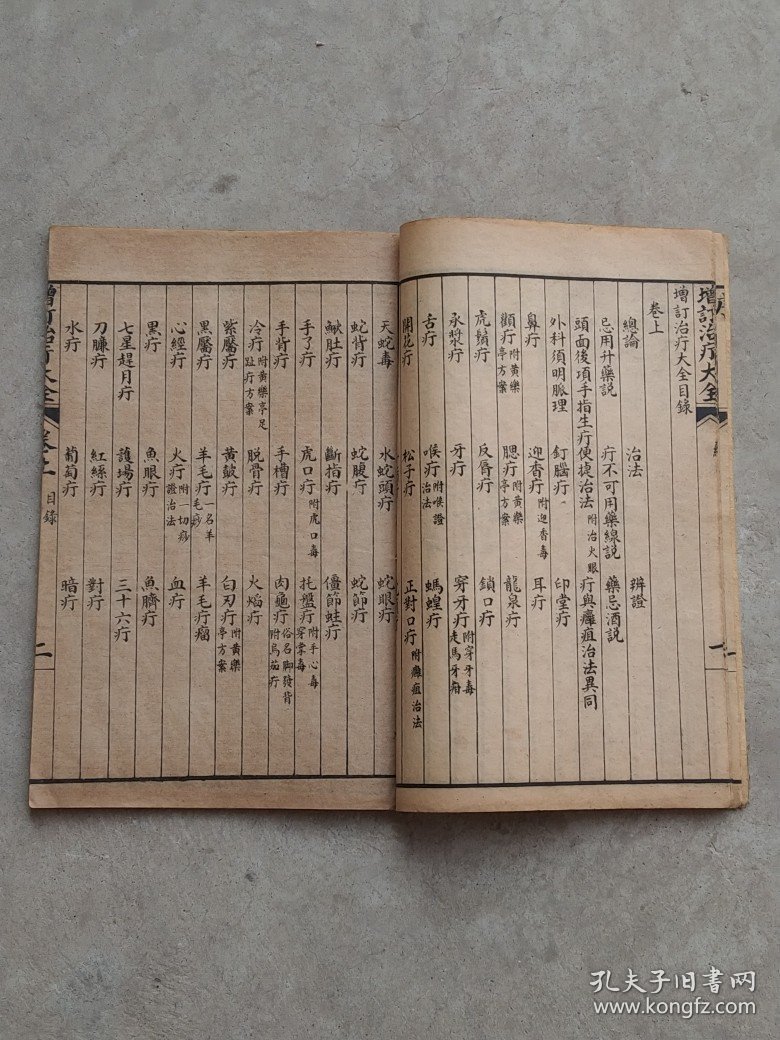 增訂治疔大全
增訂治疔大全目錄
卷上
總論 治法 辨證
忌用升藥說 疔不可用藥線說 藥忌酒說
頭面後項手指生疔便捷治法 附治火眼 疔與癰疽治法異同
外科須明脈理 釘腦疔 印堂疔
鼻疔 迎香疔 附迎香毒 耳疔
顴疔 附黃樂亭方案 腮疔 附黃樂亭方案 龍泉疔
虎鬚疔 反唇疔 鎖口疔
承漿疔 牙疔 穿牙疔 附穿牙毒走馬牙疳
舌疔 喉疔 附喉證治法 螞蝗疔
開花疔 松子疔 正對口疔 附癰疽治法
天蛇毒 水蛇頭疔 蛇眼疔
蛇背疔 蛇腹疔 蛇節疔
鰍肚疔 斷指疔 僵節蛀疔
手了疔 虎口疔 附虎口毒 托盤疔 附手心毒穿掌毒
手背疔 手槽疔 肉龜疔 俗名腳發背附烏茄疔
冷疔 附黃樂亭足趾疔方案 脱骨疔 火焰疔
紫靨疔 黃皷疔 白刃疔 附黃樂亭方案
黑靨疔 羊毛疔 名羊毛痧 羊毛疔瘤
心經疔 火疔 附一切痧證治法 血疔
黑疔 魚眼疔 魚臍疔
七星趕月疔 護場疔 三十六疔
刀鐮疔 紅絲疔 對疔
水疔 葡萄疔 暗疔
增訂治疔大全 卷上 目錄 二
孔夫子旧书网
www.kongfz.com